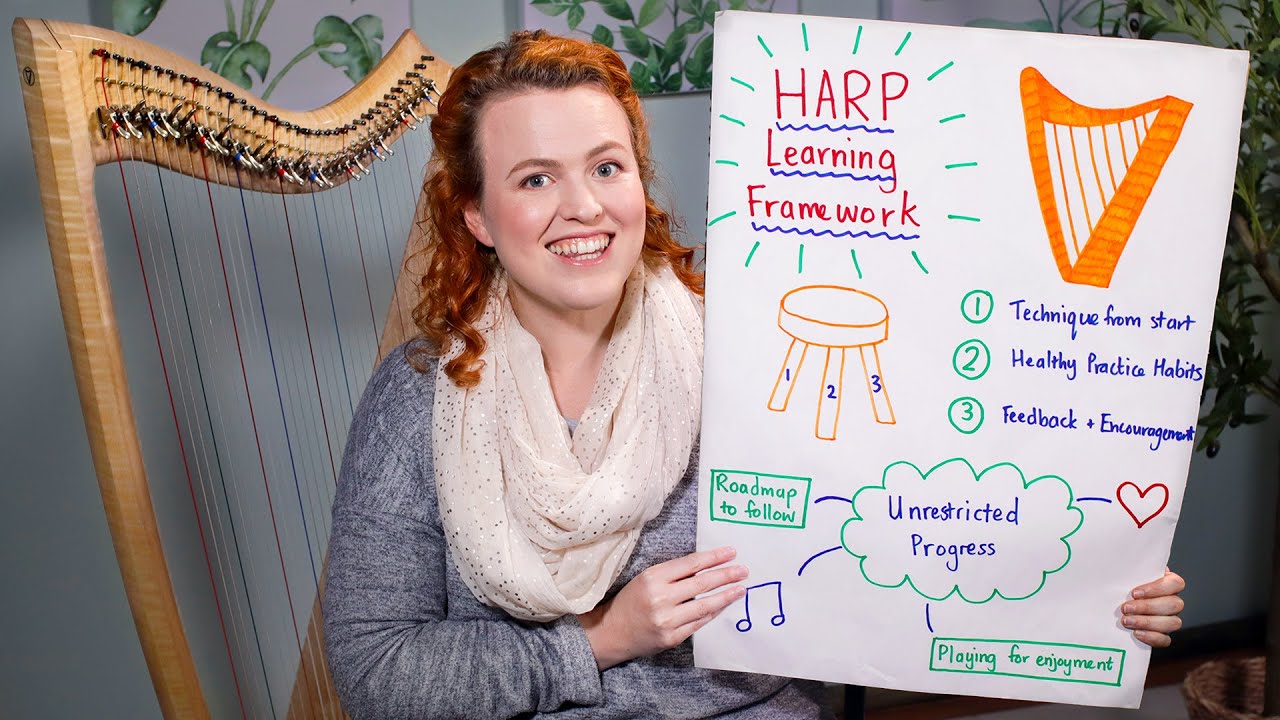 HARP
Learning
Framework
1 Technique from start
2 Healthy Practice Habits
3 Feedback + Encouragement
1 2 3
Roadmap
to follow
Unrestricted
Progress
Playing for enjoyment